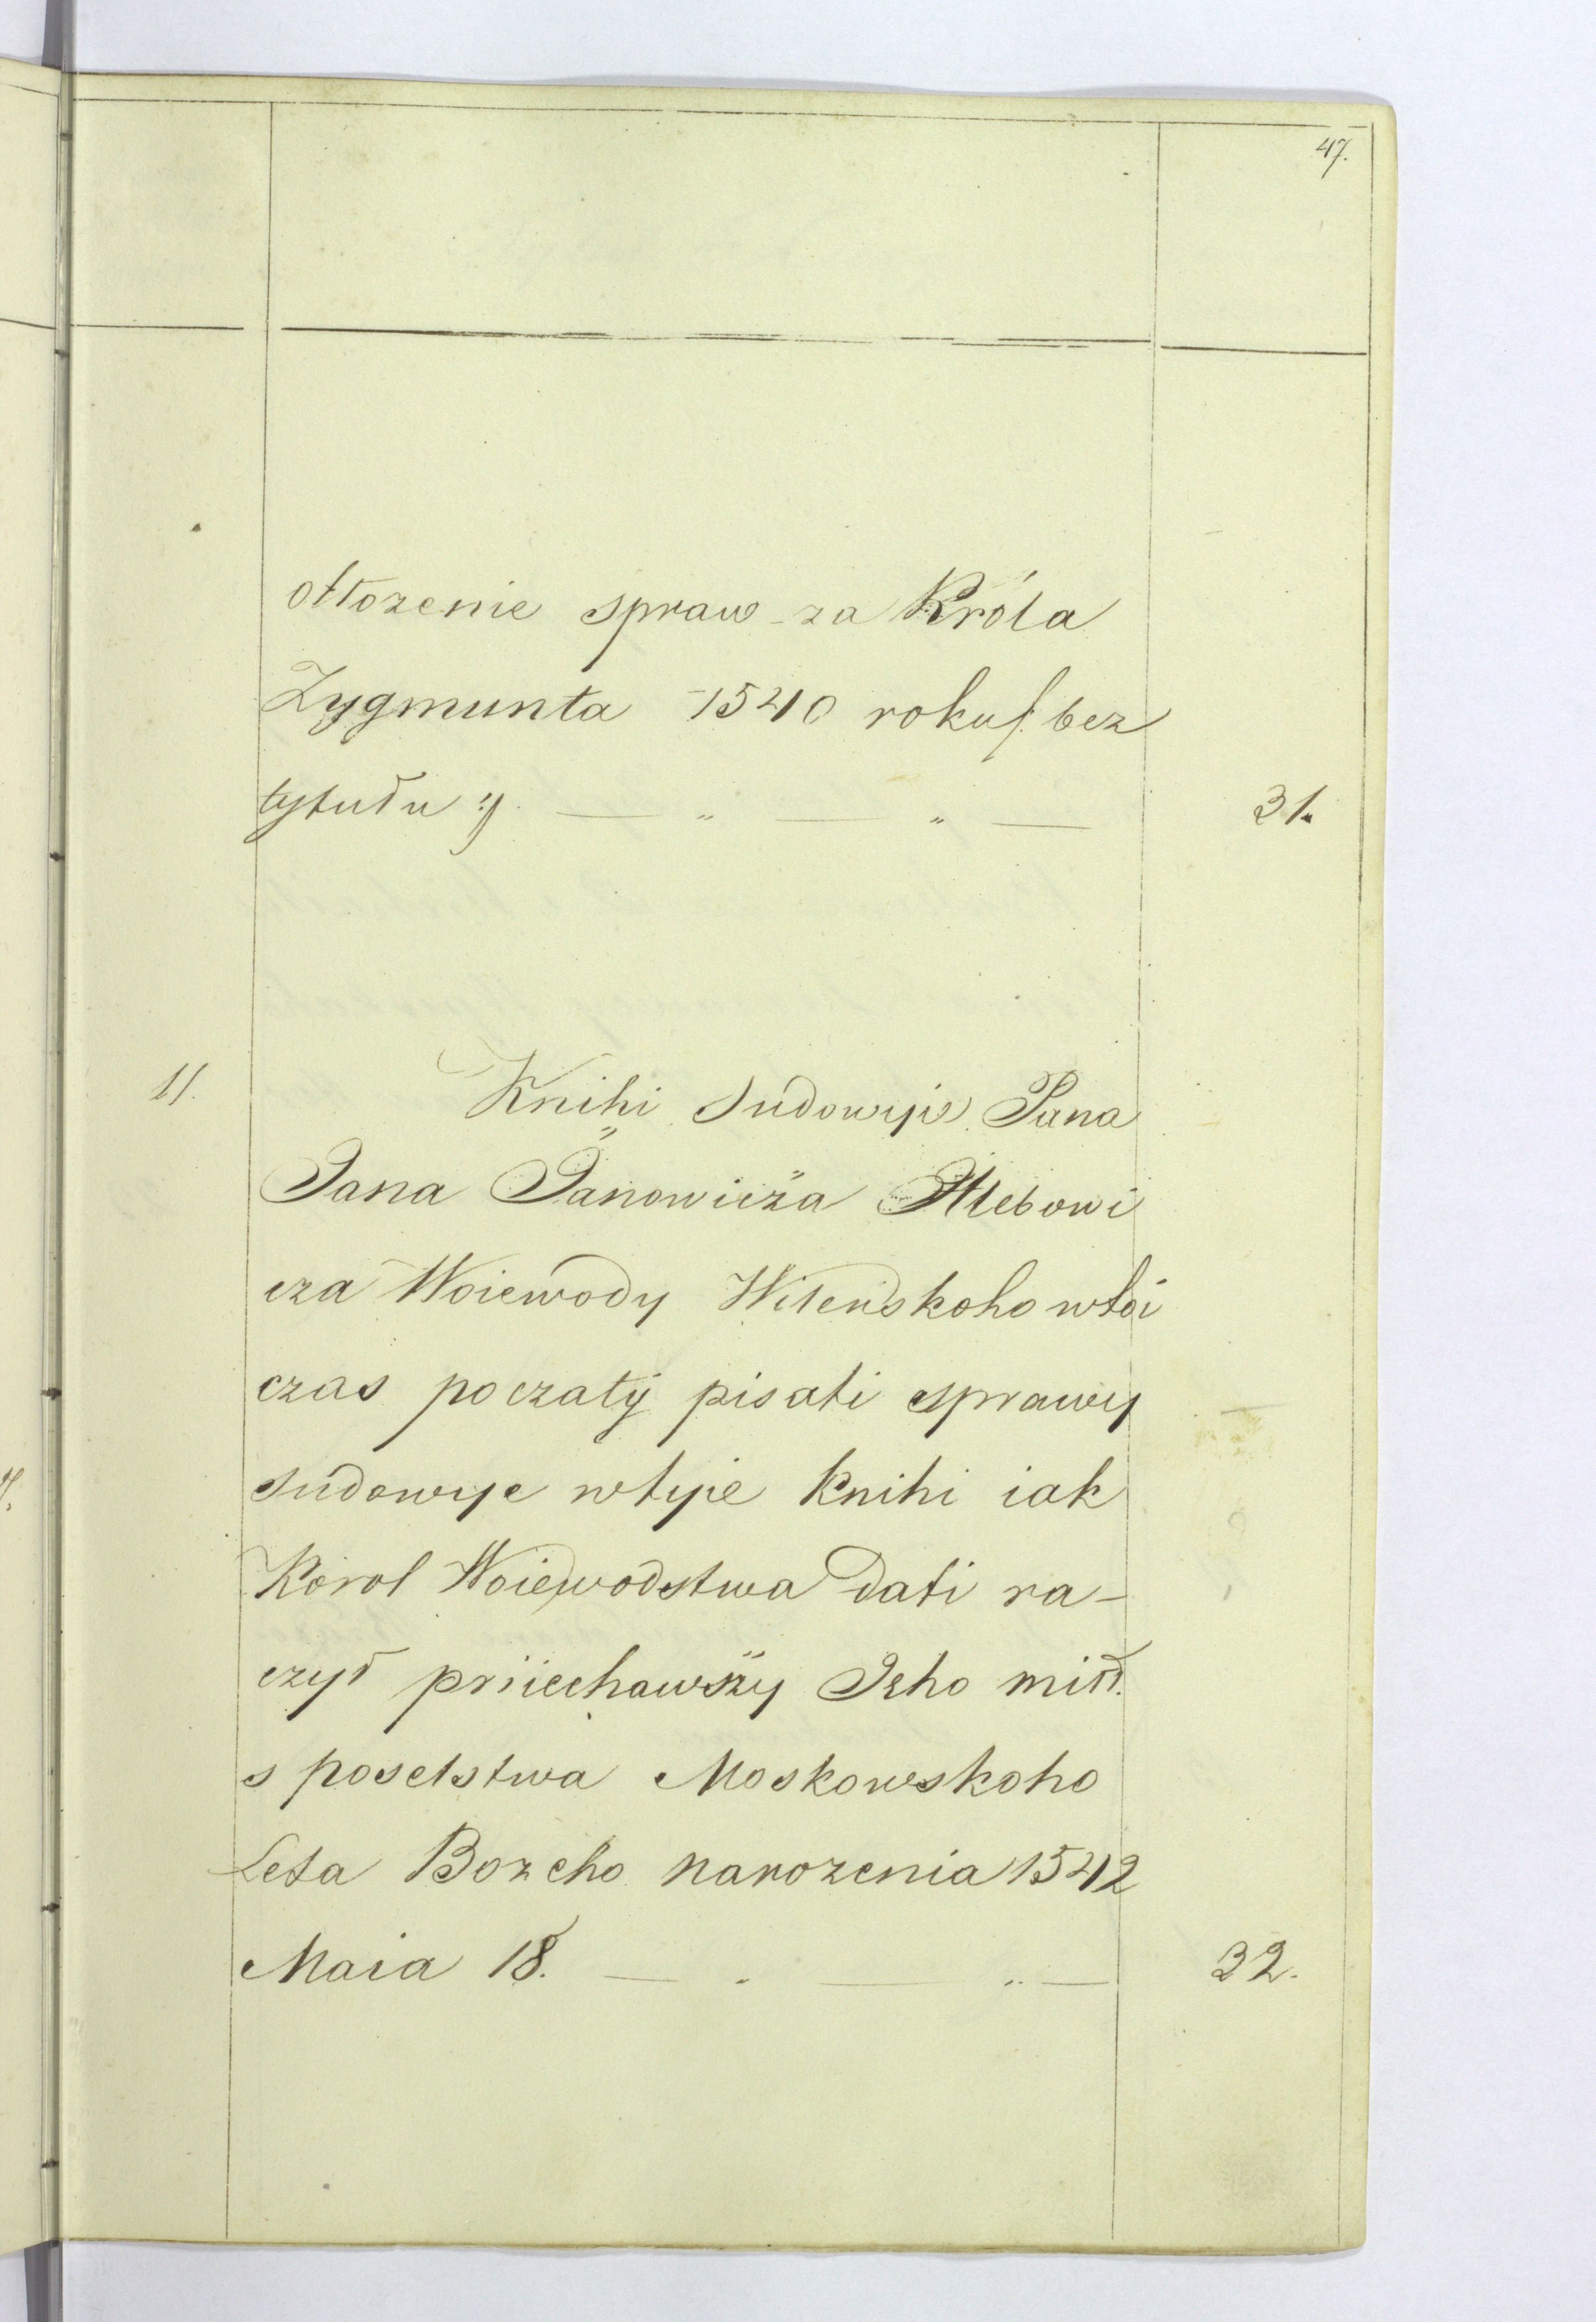 47.
otłozenie spraw za Króla
Zygmunta 1540 roku /: bez
tytułu :/. — „ — „ — 31.
11. Knihi sudowyie Pana
Jana Janowicza Hlebowi
cza Woiewody Wilenskoho wtoi
czas poczaty pisati sprawy
sudowye wtyie knihi iak
Korol Woiewodstwa dati ra-
czył priiechawszy Jeho mił.
s poselstwa Moskowskoho
Leta Bozeho narozenia 1542
Maia 18. — „ — „ — 32.